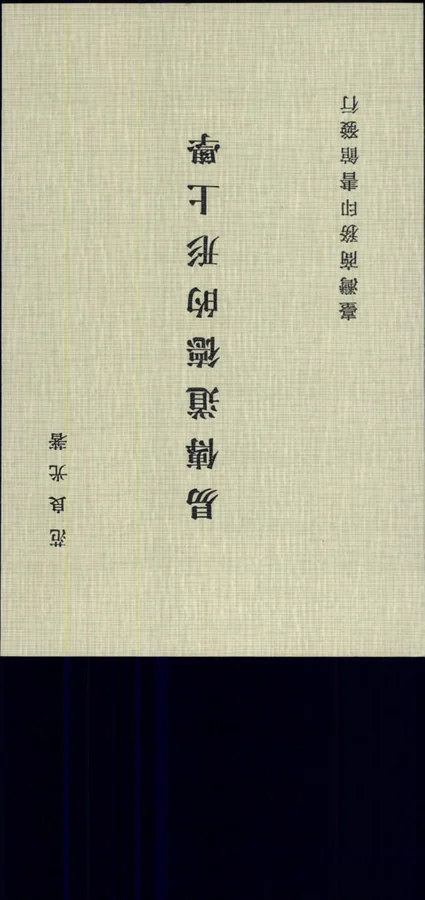 范良光 著
易傳道德的形上學
臺灣商務印書館發行